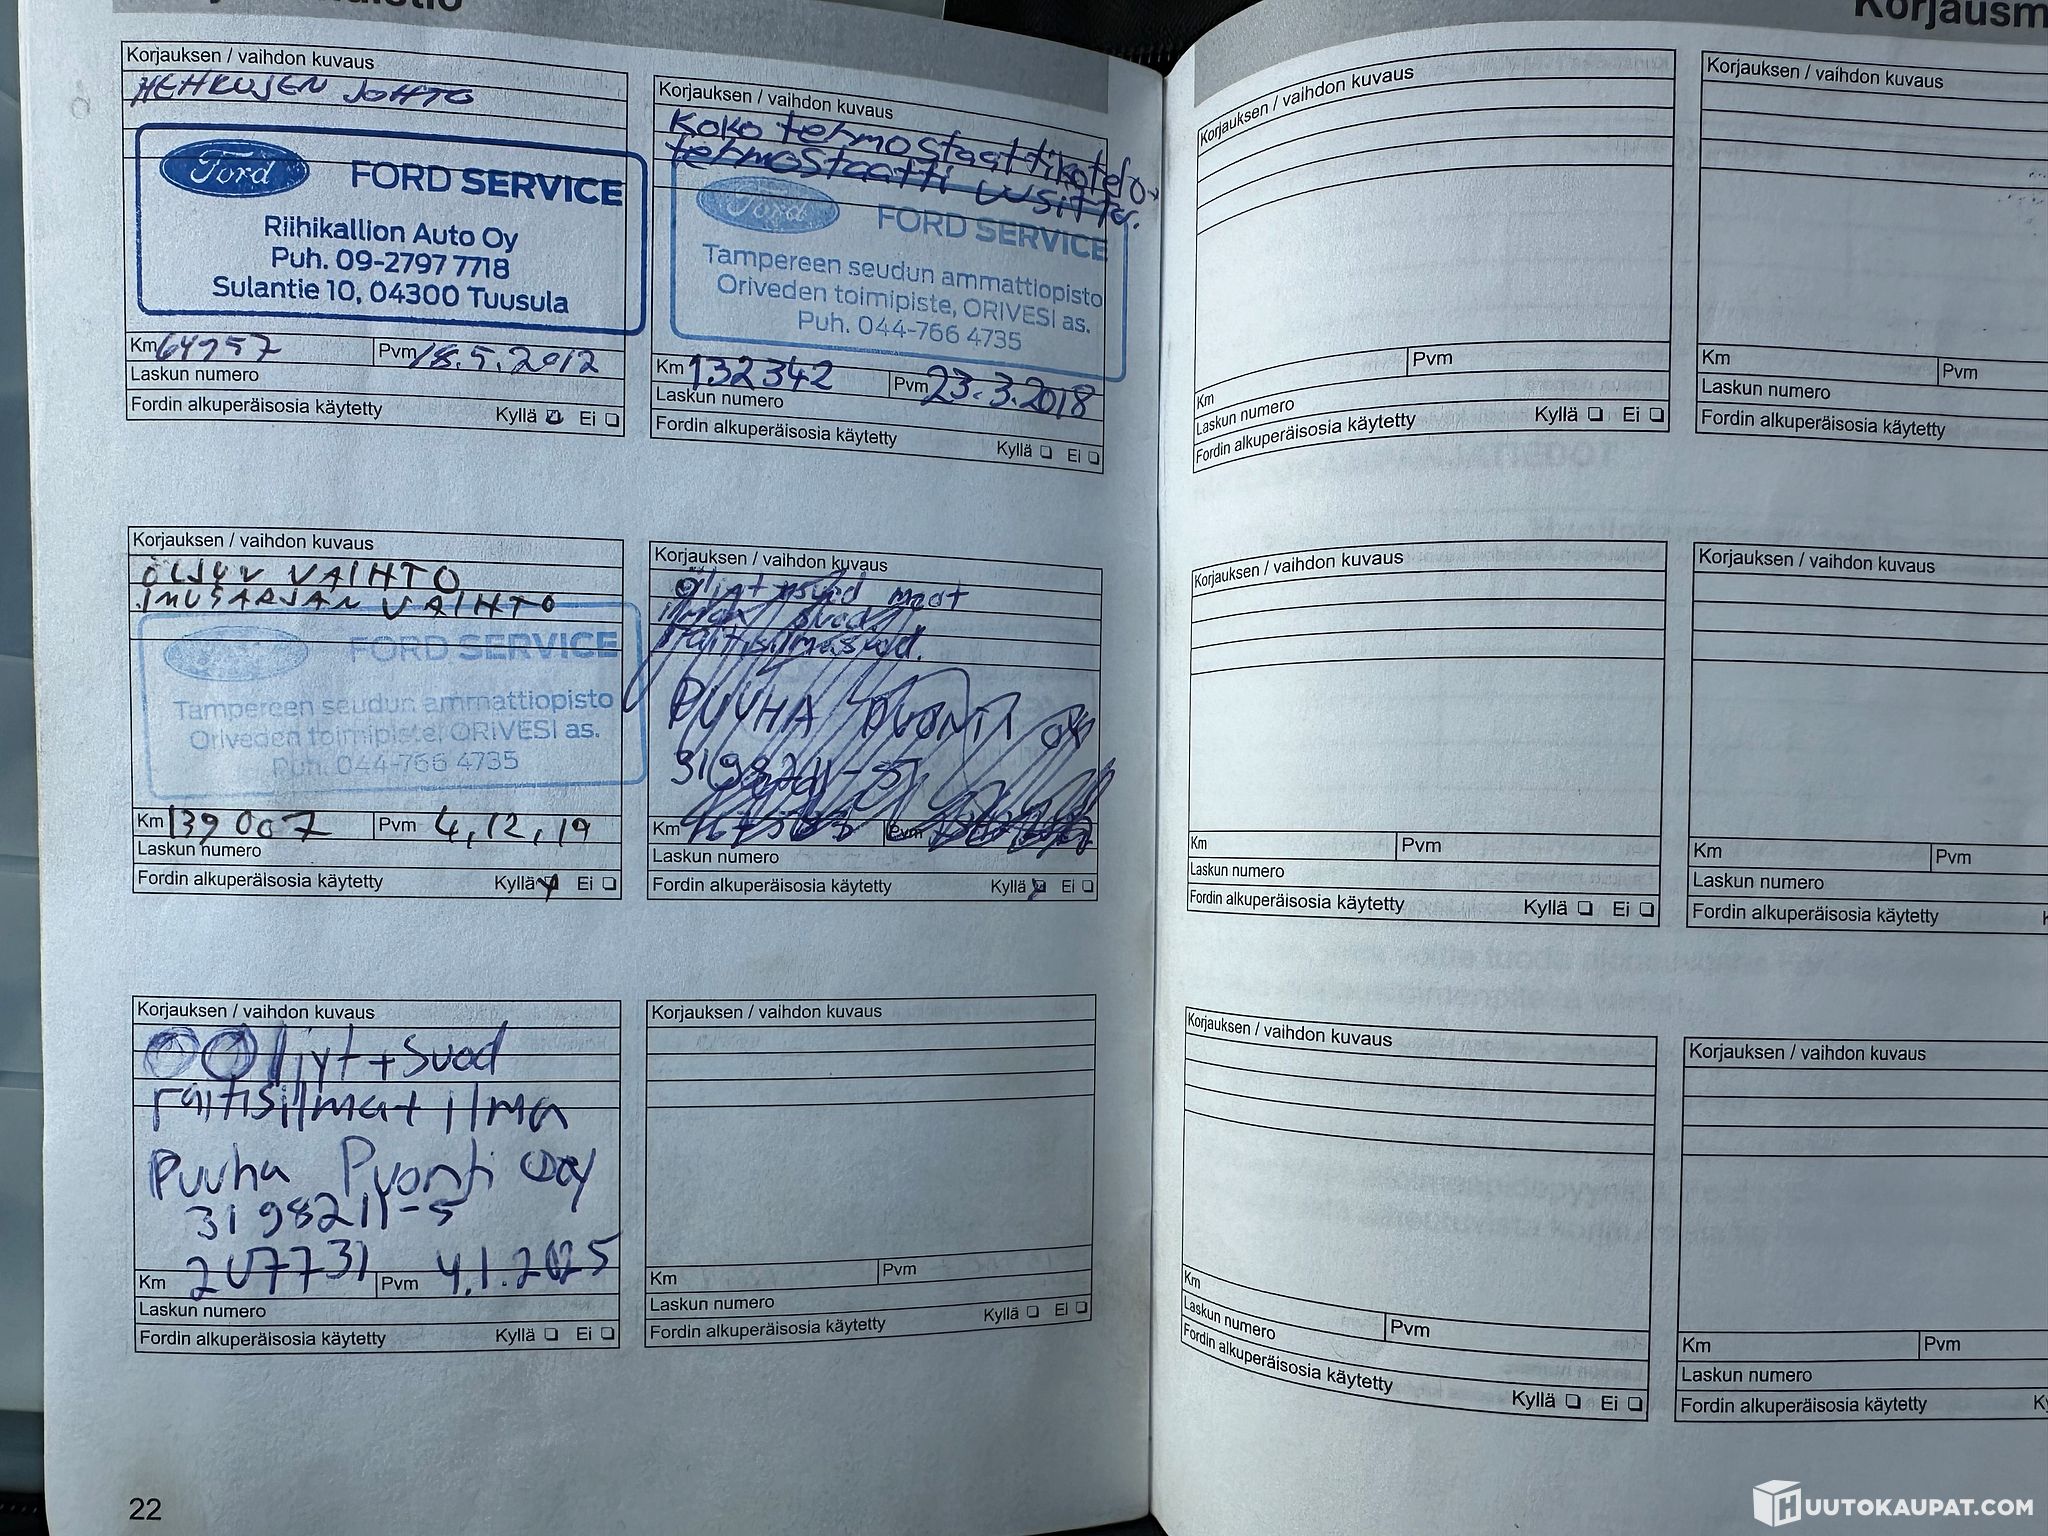 Korjauksen / vaihdon kuvaus
HEHKUJEN JOHTO
Ford
FORD SERVICE
Riihikallion Auto Oy
Puh. 09-2797 7718
Sulantie 10, 04300 Tuusula
Km 64757 Pvm 18.5.2012
Laskun numero
Fordin alkuperäisosia käytetty Kyllä Ei
Korjauksen / vaihdon kuvaus
Koko termostaattikotelo +
termostaatti uusittu.
Ford
FORD SERVICE
Tampereen seudun ammattiopisto
Oriveden toimipiste, ORIVESI as.
Puh. 044-766 4735
Km 132342 Pvm 23.3.2018
Laskun numero
Fordin alkuperäisosia käytetty Kyllä Ei
Korjauksen / vaihdon kuvaus
ÖLJYN VAIHTO
IMUSARJAN VAIHTO
FORD SERVICE
Tampereen seudun ammattiopisto
Oriveden toimipiste, ORIVESI as.
Puh. 044-766 4735
Km 139007 Pvm 4,12,19
Laskun numero
Fordin alkuperäisosia käytetty Kyllä Ei
Korjauksen / vaihdon kuvaus
öljyt
raitisilmasuod.
PUUHA PUONTI OY
3198211-5
Km Pvm
Laskun numero
Fordin alkuperäisosia käytetty Kyllä Ei
Korjauksen / vaihdon kuvaus
öljyt + suod
raitisilmat ilma
Puuha Puonti oy
3198211-5
Km 207731 Pvm 4.1.2025
Laskun numero
Fordin alkuperäisosia käytetty Kyllä Ei
Korjauksen / vaihdon kuvaus
Km Pvm
Laskun numero
Fordin alkuperäisosia käytetty Kyllä Ei
22
Korjauksen / vaihdon kuvaus
Km Pvm
Laskun numero
Fordin alkuperäisosia käytetty Kyllä Ei
Korjauksen / vaihdon kuvaus
Km Pvm
Laskun numero
Fordin alkuperäisosia käytetty
Korjauksen / vaihdon kuvaus
Km Pvm
Laskun numero
Fordin alkuperäisosia käytetty Kyllä Ei
Korjauksen / vaihdon kuvaus
Km Pvm
Laskun numero
Fordin alkuperäisosia käytetty
Korjauksen / vaihdon kuvaus
Km Pvm
Laskun numero
Fordin alkuperäisosia käytetty Kyllä Ei
Korjauksen / vaihdon kuvaus
Km Pvm
Laskun numero
Fordin alkuperäisosia käytetty
HUUTOKAUPAT.COM